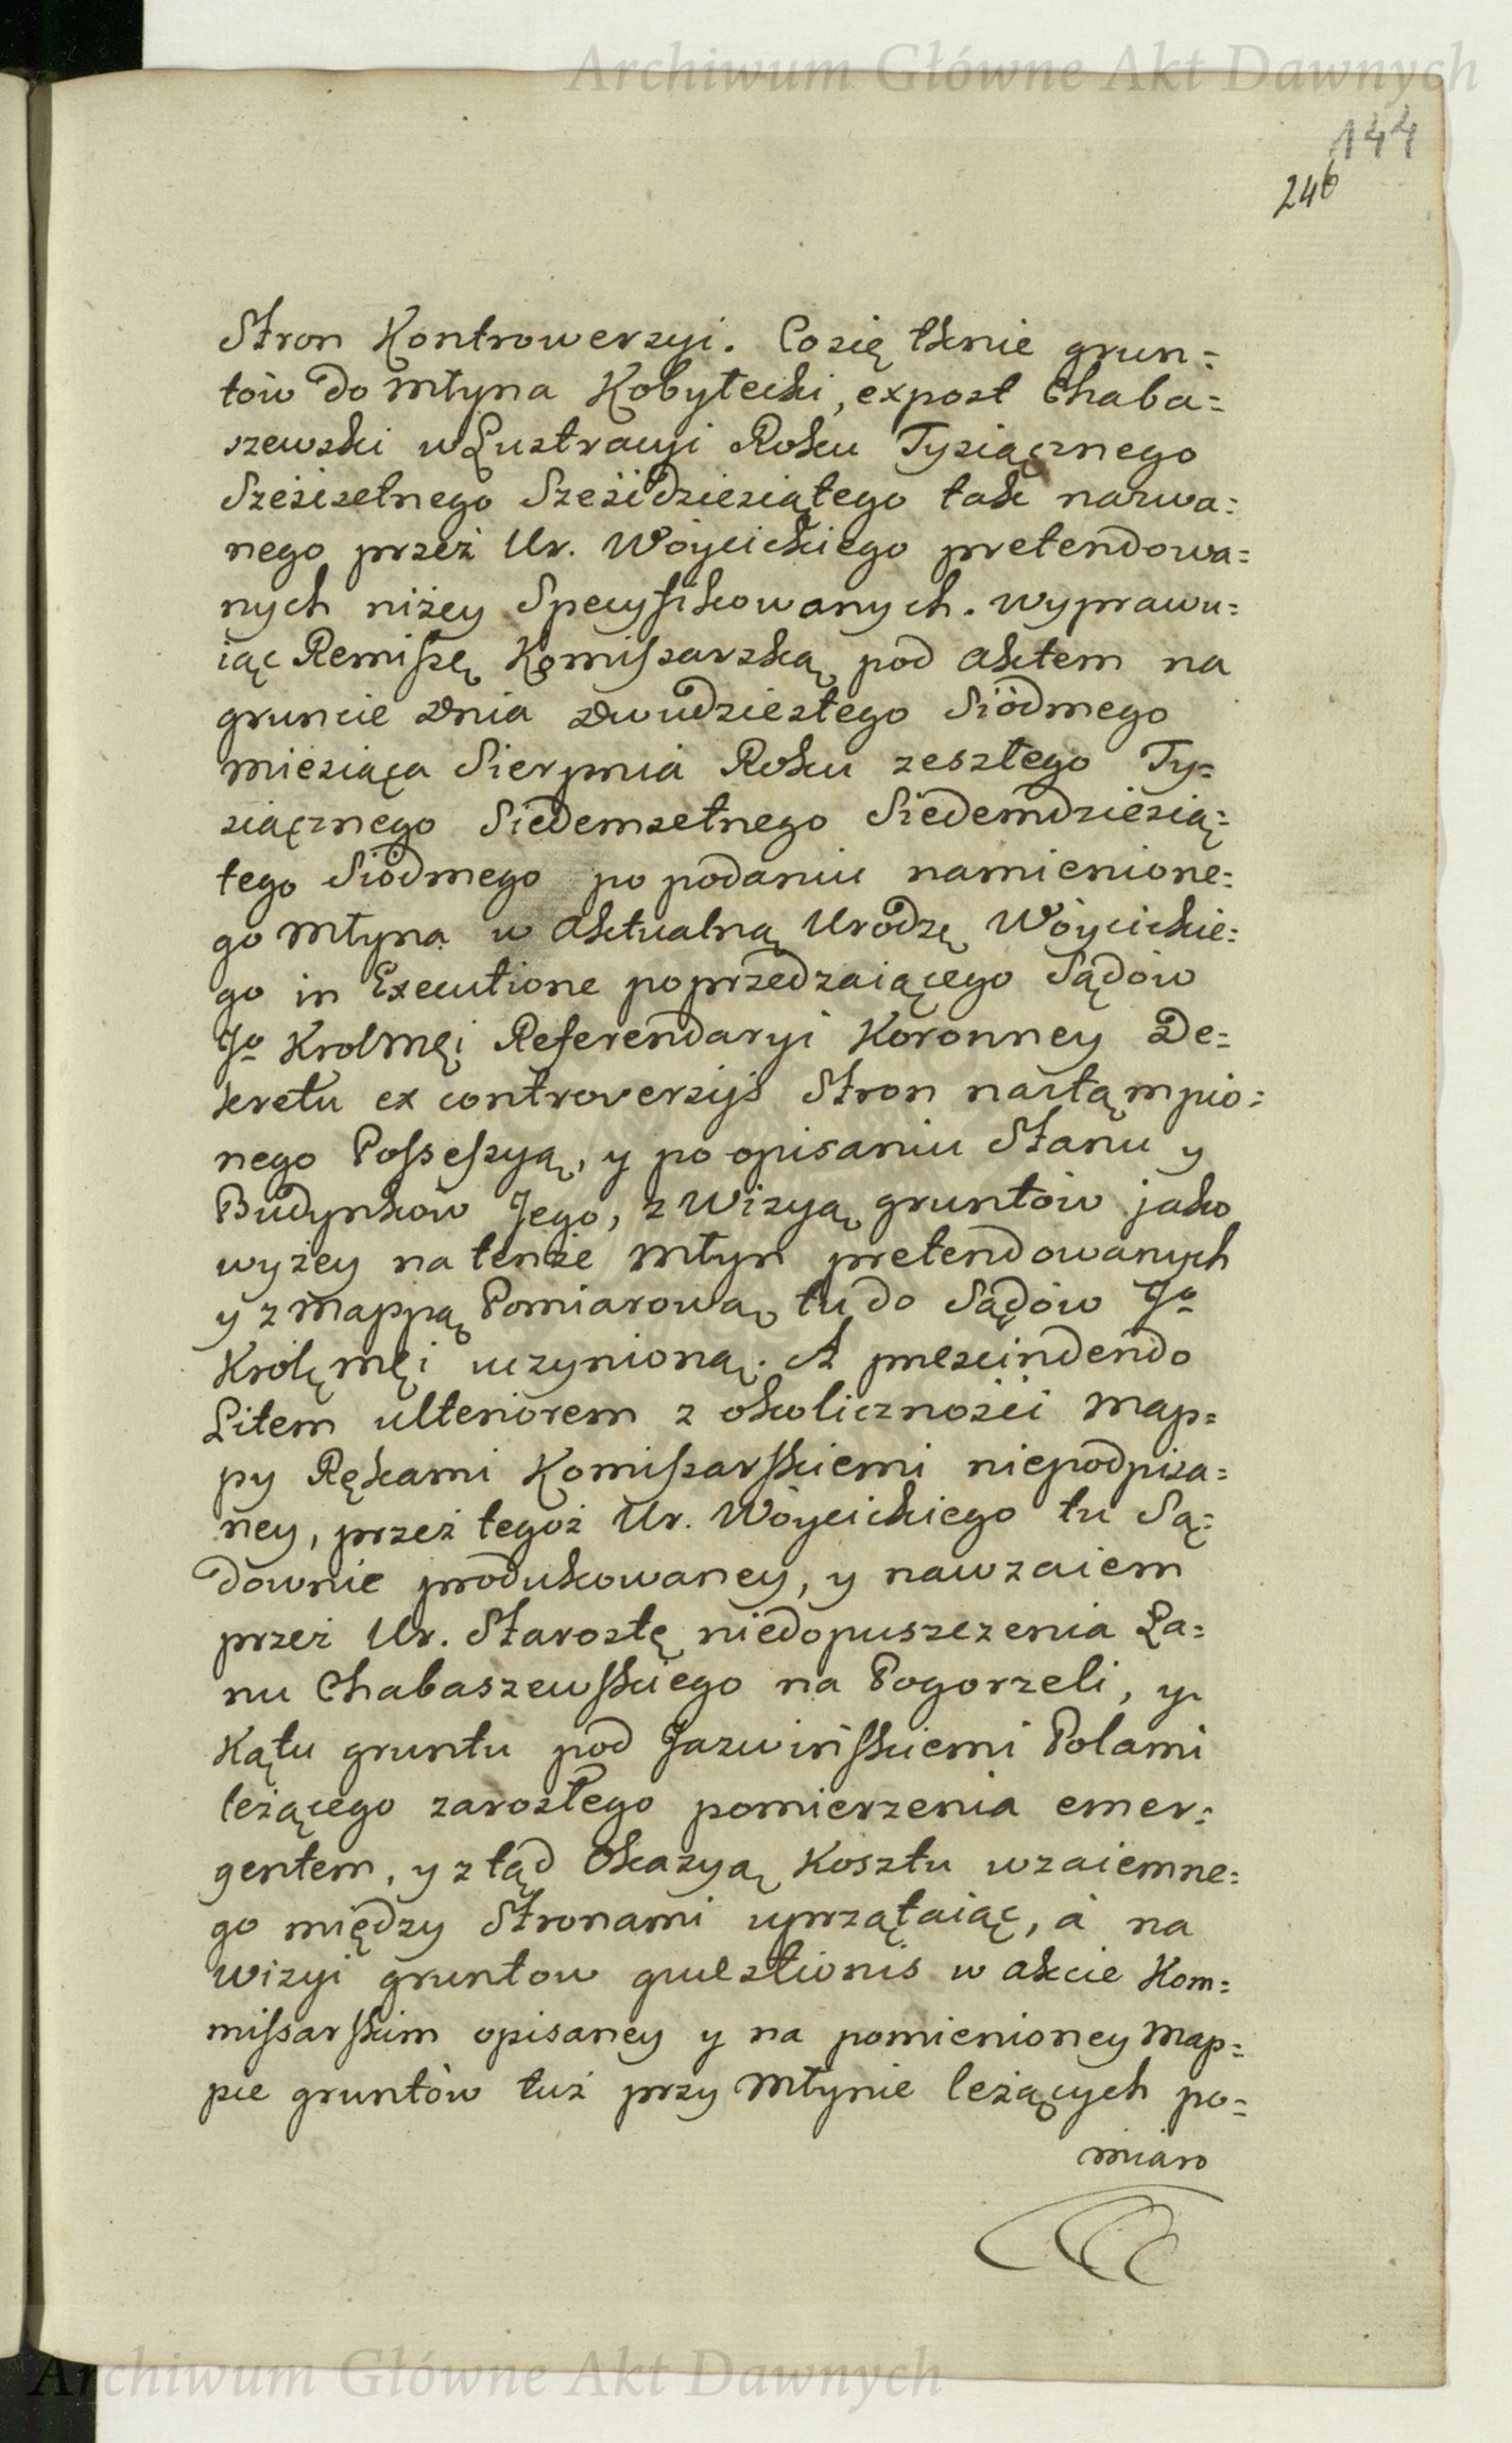 Archiwum Główne Akt Dawnych
144
246
Stron Kontrowersyi. Co się tknie grun=
tów do Młyna Kobyłecki, expost Chaba=
szewski w Lustracyi Roku Tysiącznego
Sześćsetnego Sześćdziesiątego tak nazwa=
nego przeź Ur. Wóycickiego pretendowa=
nych niżey Specyfikowanych. Wyprawu=
iąc Remissę Kommissarską pod Aktem na
gruncie Dnia Dwudziestego Siódmego
miesiąca Sierpnia Roku zeszłego Ty=
siącznego Siedemsetnego Siedemdziesią=
tego Siódmego po podaniu namienione=
go Młyna w Aktualną Urodzę Wóycickie=
go in Executione poprzedzaiącego Sądów
Jo KrolMci Referendaryi Koronney De=
kretu ex controversijs Stron nastąmpio=
nego Possessyą, y po opisaniu Stanu y
Budynków Jego, z Wizyą gruntów jako
wyżey na tenże Młyn pretendowanych
y z Mappą Pomiarową tu do Sądów Jo
Królęmci uczynioną. A prescindendo
Litem ulteriorem z okoliczności Map=
py Rękami Komissarskiemi niepodpisa=
ney, przeź tegoż Ur. Wóycickiego tu Są=
downie produkowaney, y nawzaiem
przez Ur. Starostę niedopuszczenia Ła=
nu Chabaszewskiego na Pogorzeli, y
Kątu gruntu pod Jazwińskiemi Polami
leżącego zarosłego pomierzenia emer=
gentem, y ztąd Okazyą Kosztu wzaiemne=
go między Stronami uprzątaiąc, a na
wizyi gruntow questionis w akcie Kom=
missarskim opisaney y na pomienioney Map=
pie gruntów tuż przy Młynie leżących po=
miaro
Archiwum Główne Akt Dawnych